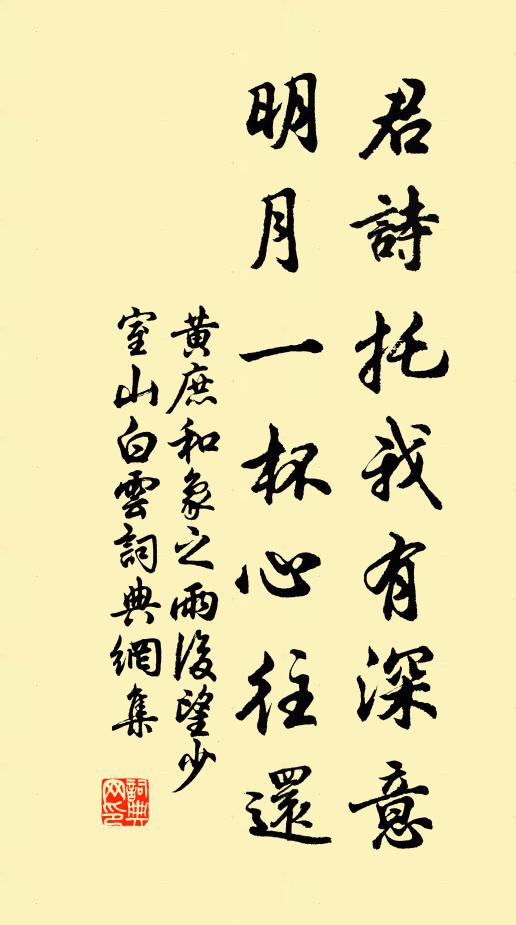 君詩托我有深意
明月一杯心往還
黃庶和象之雨後望少
室山白雲詞典網集
詞典
网印